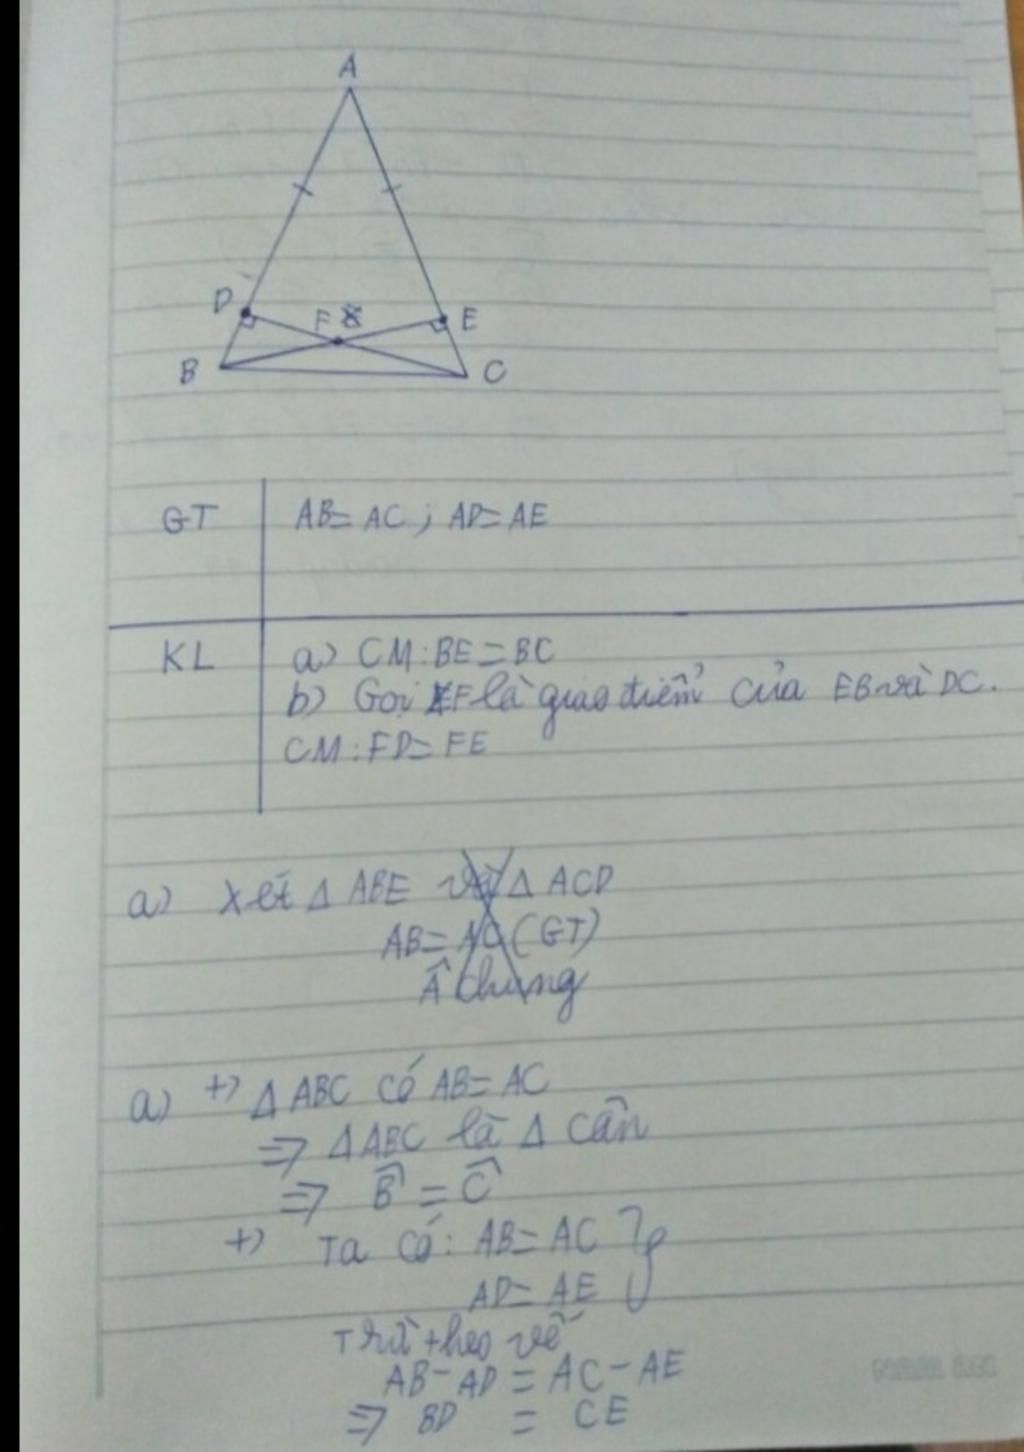 A
D
F
E
B
C
GT
AB = AC ; AD = AE
KL
a) CM : BE = BC
b) Gọi F là giao điểm của EB và DC.
CM : FD = FE
a) Xét Δ ABE và Δ ACD
AB = AC (GT)
Â chung
a) +) Δ ABC có AB = AC
⇒ Δ ABC là Δ cân
⇒ B̂ = Ĉ
+) Ta có: AB = AC }
AD = AE
Trừ theo vế
AB - AD = AC - AE
⇒ BD = CE